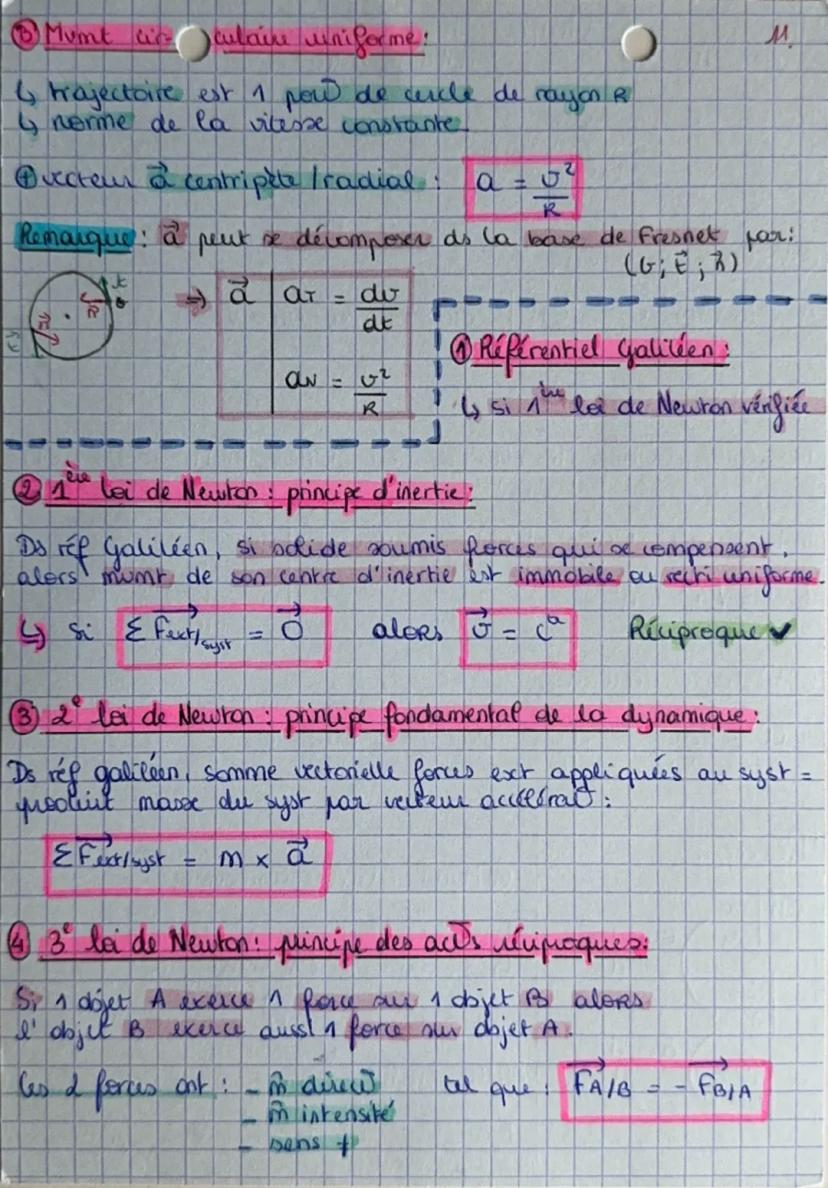 ③ Mvmt circulaire uniforme :
11.
↳ trajectoire est 1 porᵗⁱᵒⁿ de cercle de rayon R
↳ norme de la vitesse constante
⊕ vecteur a⃗ centripète / radial : a = v²/R
Remarque : a⃗ peut se décomposer ds la base de Fresnet par :
(G ; t⃗ ; n⃗)
⇒ a⃗ | aT = dv/dt
aN = v²/R
① Référentiel Galiléen :
↳ si 1ère loi de Newton vérifiée
② 1ère loi de Newton : principe d'inertie :
Ds réf Galiléen, si solide soumis forces qui se compensent,
alors mvmt de son centre d'inertie est immobile ou recti uniforme.
↳ si Σ F⃗ext/syst = 0⃗ alors v⃗ = cᵗᵉ Réciproque ✓
③ 2e loi de Newton : principe fondamental de la dynamique :
Ds réf galiléen, somme vectorielle forces ext appliquées au syst =
produit masse du syst par vecteur accélératᵒ :
Σ F⃗ext/syst = m × a⃗
④ 3e loi de Newton : principe des actᵒs réciproques :
Si 1 objet A exerce 1 force sur 1 objet B alors
l'objet B exerce aussi 1 force sur objet A.
Les 2 forces ont : - m̂ directᵒ tel que : F⃗A/B = - F⃗B/A
- m̂ intensité
- sens ≠